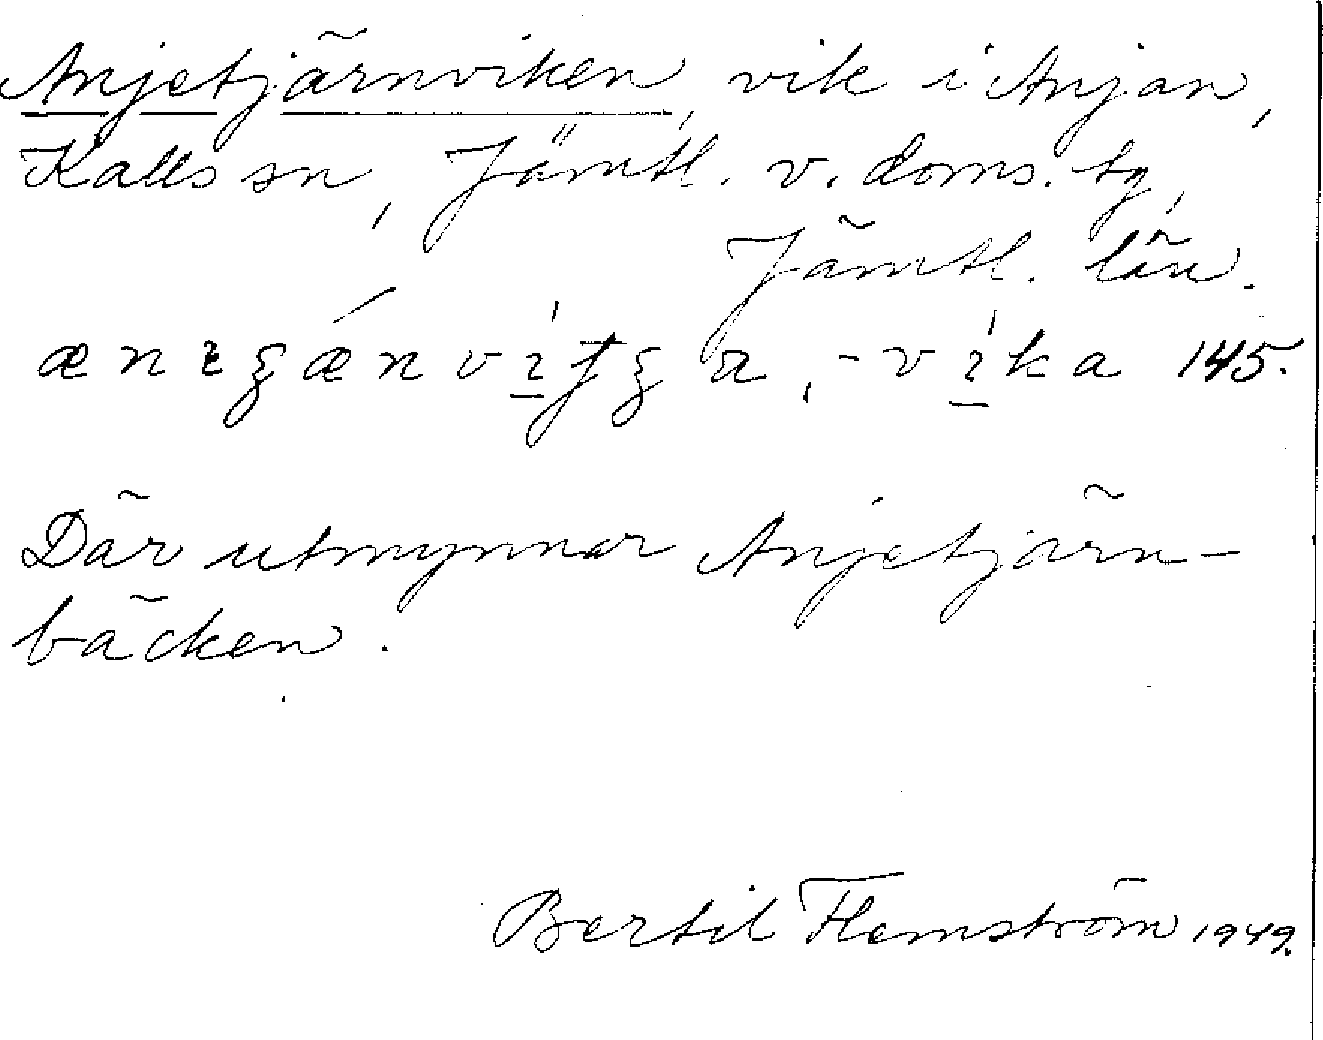 Anjetjärnviken, vik i Anjan,
Kalls sn, Jämtl. v. doms. tg,
Jämtl. län.
-vika 145.
Där utmynnar Anjetjärn-
bäcken.
Bertil Flemström 1949.